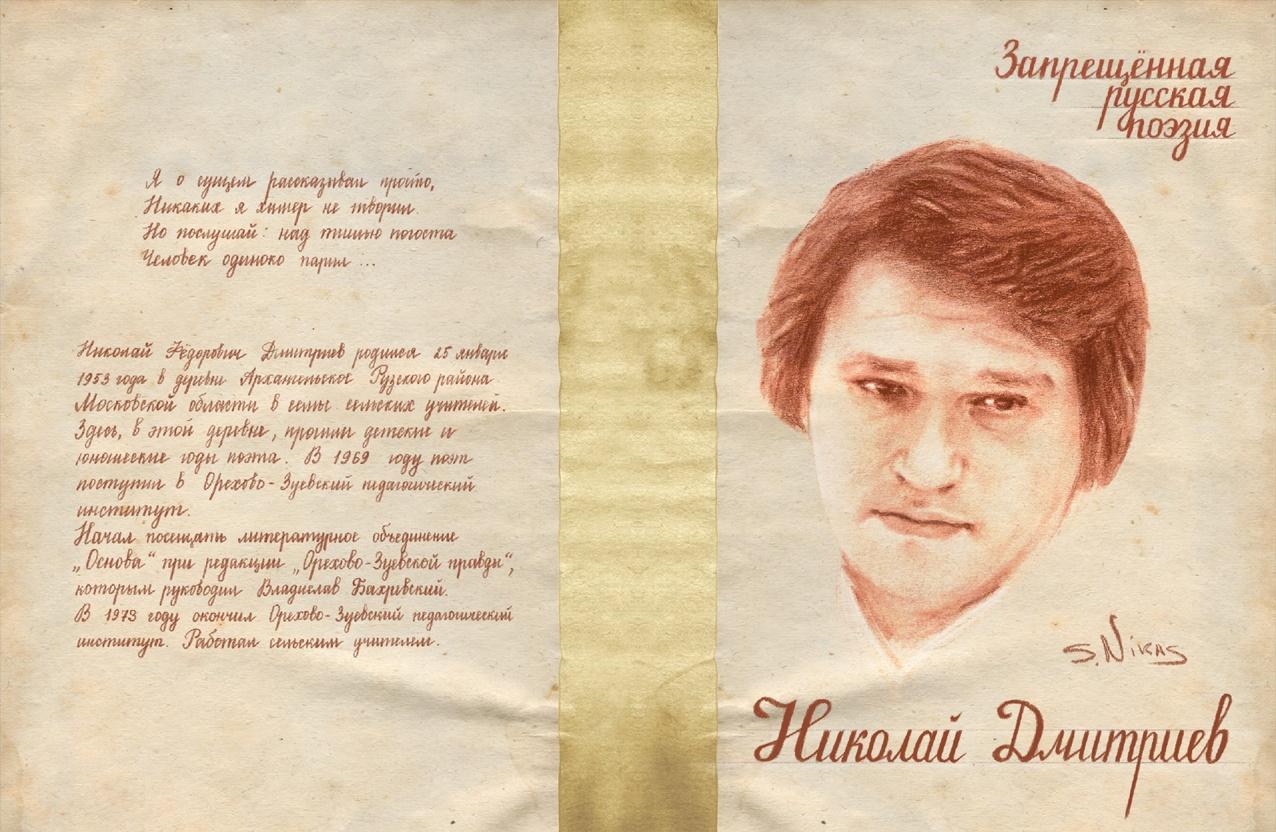 Я о сущем рассказывал просто,
Никаких я химер не творил.
Но послушай: над тишью погоста
Человек одиноко парил ...
Николай Фёдорович Дмитриев родился 25 января
1953 года в деревне Архангельское Рузского района
Московской области в семье сельских учителей.
Здесь, в этой деревне, прошли детские и
юношеские годы поэта. В 1969 году поэт
поступил в Орехово-Зуевский педагогический
институт.
Начал посещать литературное объединение
„Основа“ при редакции „Орехово-Зуевской правды“,
которым руководил Владислав Бахревский.
В 1973 году окончил Орехово-Зуевский педагогический
институт. Работал сельским учителем.
Запрещённая
русская
поэзия
S. Nikas
Николай Дмитриев